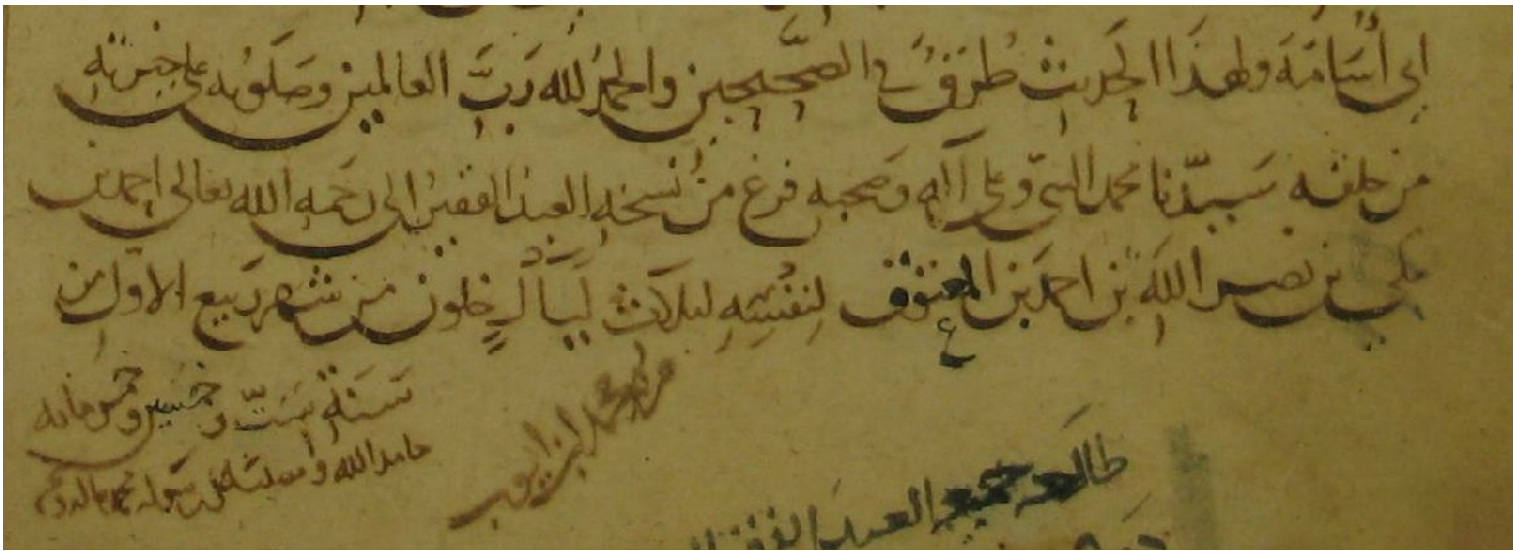 ابي أسامة ولهذا الحديث طرق في الصحيحين والحمد لله رب العالمين وصلوته على خيرته
من خلقه سيدنا محمد النبي وعلى آله وصحبه فرغ من نسخه العبد الفقير الى رحمه الله تعالى احمد بن
علي بن نصر الله بن احمد بن لنفسه لثلاث ليال خلون من شهر ربيع الاول من
سنة ست وخمسين وخمس مائه
حامدا لله و
محمد ايوب
طالعه جميعه العبد الفقير